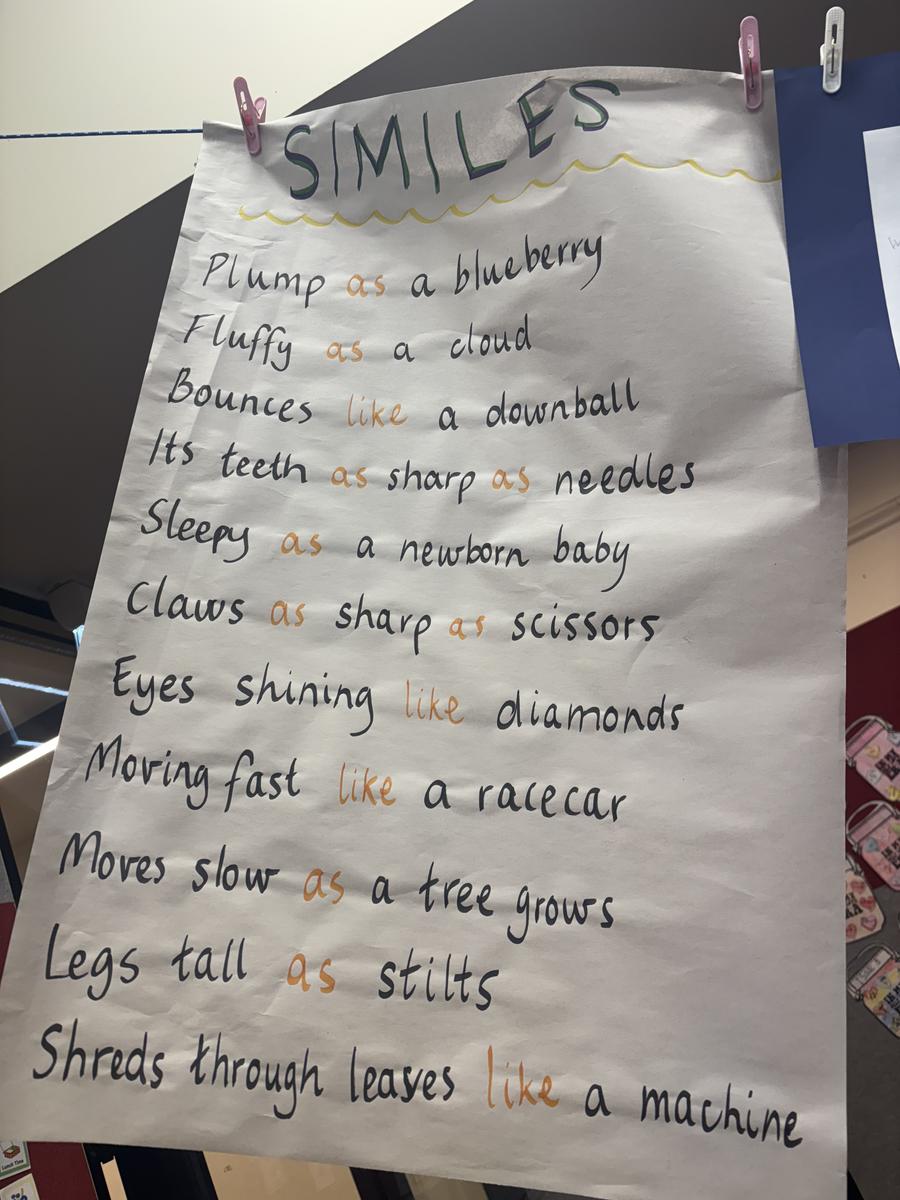 SIMILES
Plump as a blueberry
Fluffy as a cloud
Bounces like a downball
Its teeth as sharp as needles
Sleepy as a newborn baby
Claws as sharp as scissors
Eyes shining like diamonds
Moving fast like a racecar
Moves slow as a tree grows
Legs tall as stilts
Shreds through leaves like a machine
Lunch Time